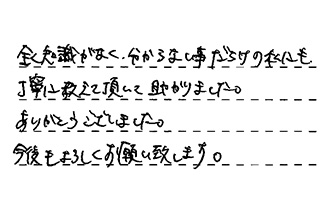 全く知識がなく、分からない事だらけの私にも
丁寧に教えて頂いて助かりました。
ありがとうございました。
今後もよろしくお願い致します。